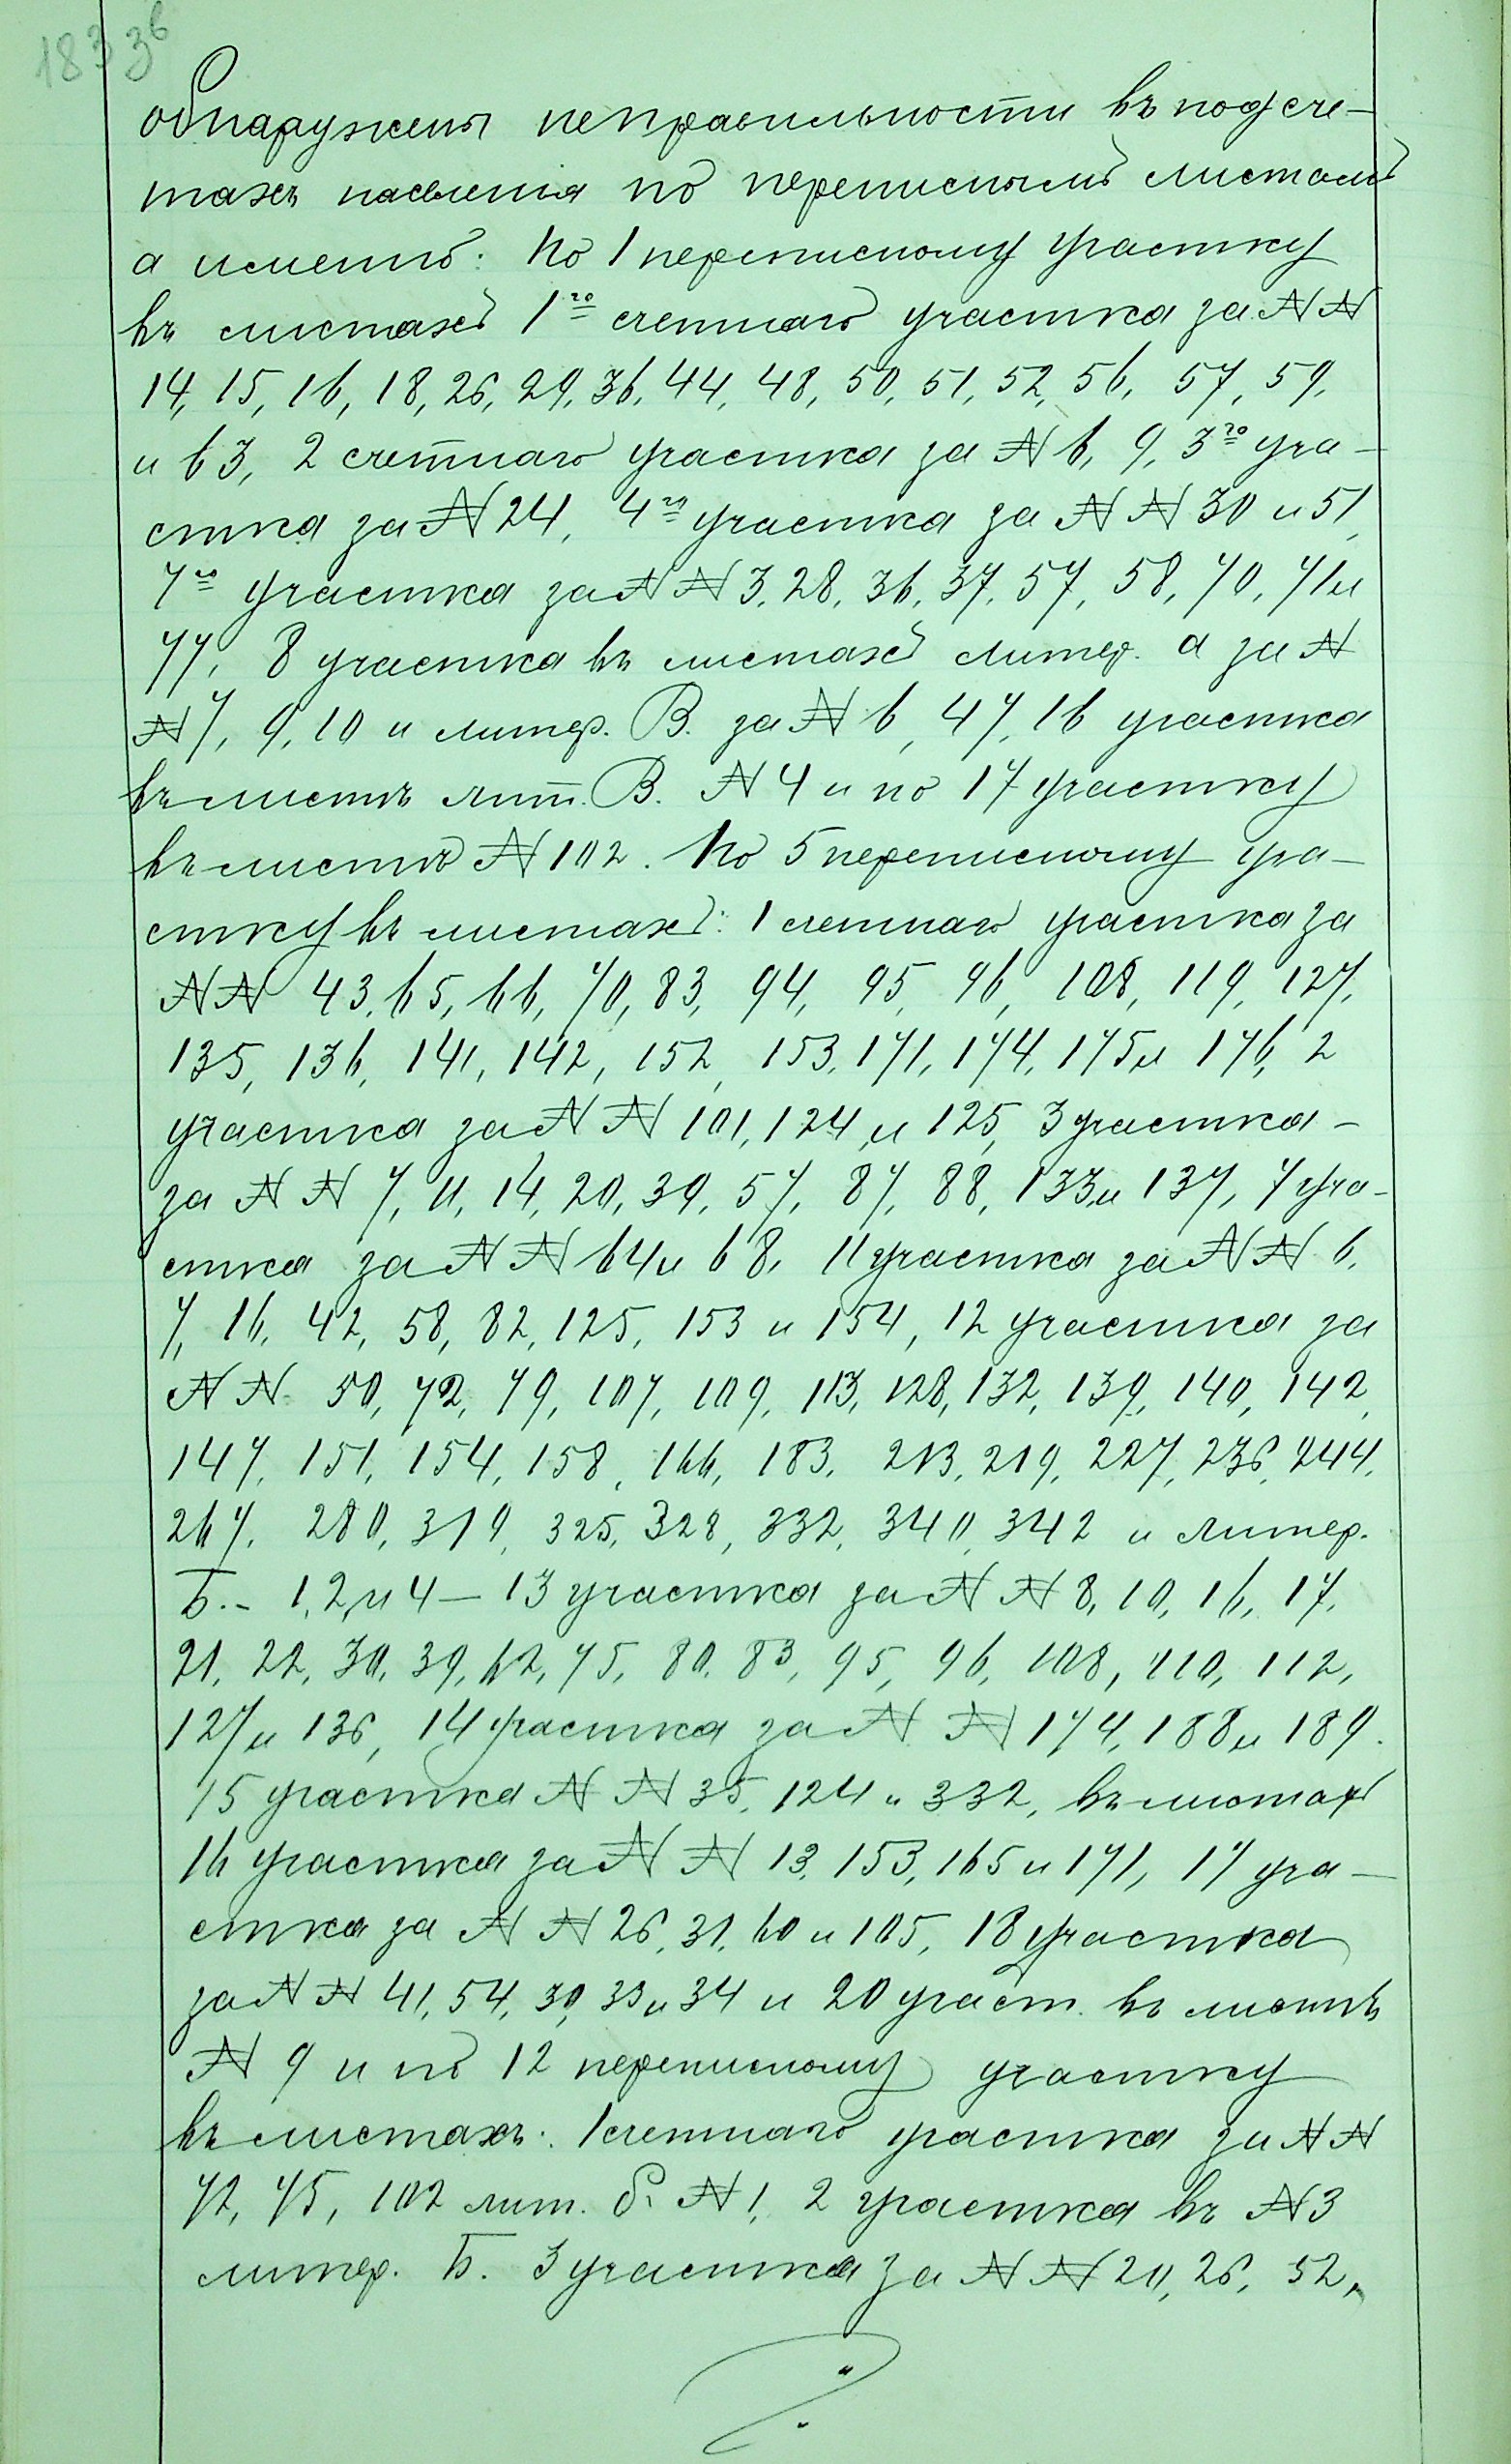 183 3в
обнаружены неправильности въ подсче-
тахъ населенія по переписнымъ листамъ
а именно: По 1 переписному участку
въ листахъ 1го счетнаго участка за №№
14, 15, 16, 18, 26, 29, 36, 44, 48, 50, 51, 52, 56, 57, 59,
и 63, 2 счетнаго участка за № 6, 9, 3го уча-
стка за № 24, 4го участка за №№ 30 и 51,
7го участка за №№ 3, 28, 36, 37, 57, 58, 70, 71 и
77, 8 участка въ листахъ литер. а за №
№ 7, 9, 10 и литер. В. за № 6, 47, 16 участка
въ листѣ лит. В. № 4 и по 17 участку
въ листѣ № 102. По 5 переписному уча-
стку въ листахъ: 1 счетнаго участка за
№№ 43, 65, 66, 70, 83, 94, 95, 96, 108, 119, 127,
135, 136, 141, 142, 152, 153, 171, 174, 175 и 176, 2
участка за №№ 101, 124, и 125, 3 участка -
за №№ 7, 11, 14, 20, 39, 57, 87, 88, 133 и 137, 7 уча-
стка за №№ 64 и 68, 11 участка за №№ 6,
7, 16, 42, 58, 82, 125, 153 и 154, 12 участка за
№№ 50, 72, 79, 107, 109, 113, 128, 132, 139, 140, 142,
147, 151, 154, 158, 166, 183, 213, 219, 227, 236, 244,
267, 280, 319, 325, 328, 332, 340, 342 и литер.
Б. - 1, 2, и 4 - 13 участка за №№ 8, 10, 16, 17,
21, 22, 30, 39, 62, 75, 80, 83, 95, 96, 108, 110, 112,
127 и 136, 14 участка за №№ 174, 188 и 189.
15 участка №№ 35, 124 и 332, въ листах
16 участка за №№ 13, 153, 165 и 171, 17 уча-
стка за №№ 26, 31, 60 и 105, 18 участка
за №№ 41, 54, 30, 33 и 34 и 20 участ. въ листѣ
№ 9 и по 12 переписному участку
въ листахъ: 1 счетнаго участка за №№
72, 75, 102 лит. б. № 1, 2 участка въ № 3
литер. Б. 3 участка за №№ 20, 26, 52,